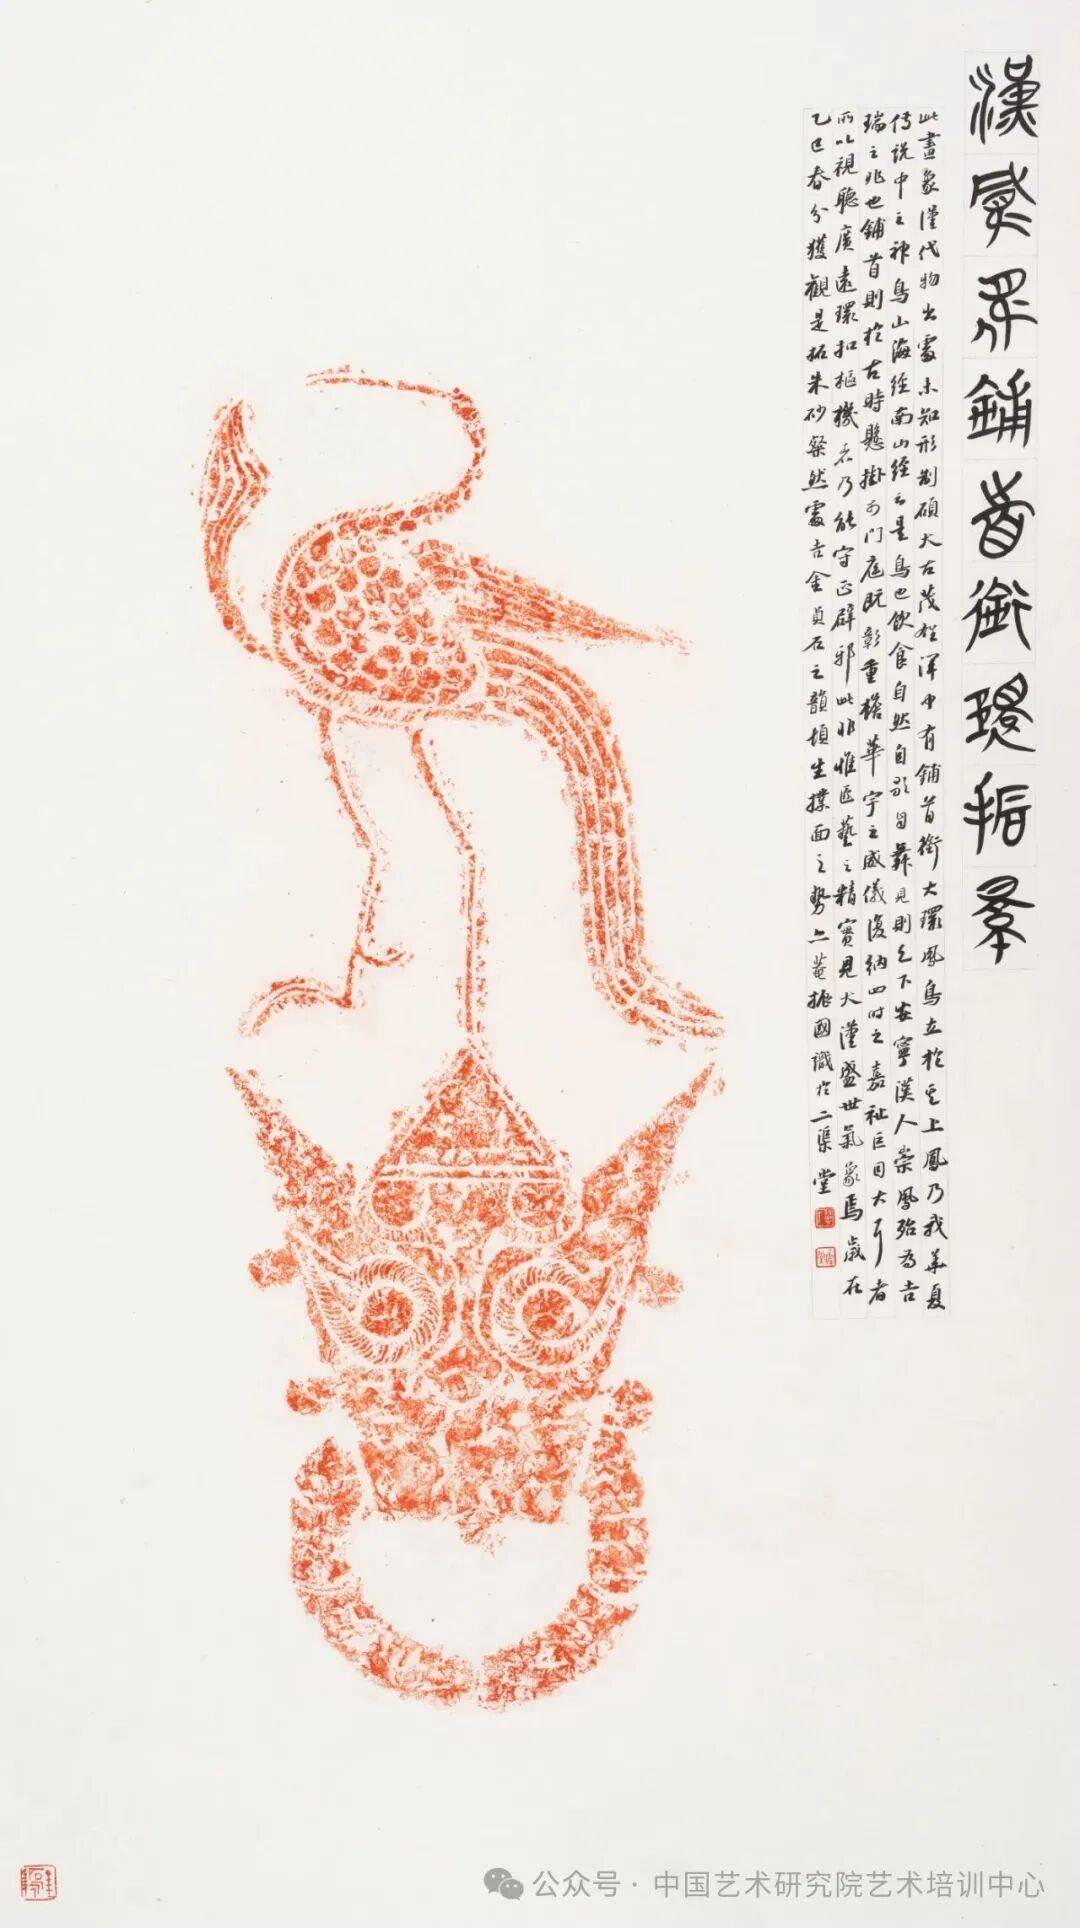 漢鋪首銜環拓本
此畫象漢代物出處未知形制碩大古茂雄渾中有鋪首銜大環鳳鳥立於其上鳳乃我華夏
傳說中之神鳥山海經南山經云是鳥也飲食自然自歌自舞見則天下安寧漢人崇鳳殆為吉
瑞之兆也鋪首則於古時懸掛於門庭既彰重檐華宇之威儀復納四時之嘉祉巨目大耳者
所以視聽廣遠環扣樞機者乃能守正辟邪此非惟匠藝之精實見大漢盛世氣象焉歲在
乙巳春分獲觀是拓朱砂粲然處吉金貞石之韻頓生撲面之勢菴振國識於二渠堂
公众号·中国艺术研究院艺术培训中心